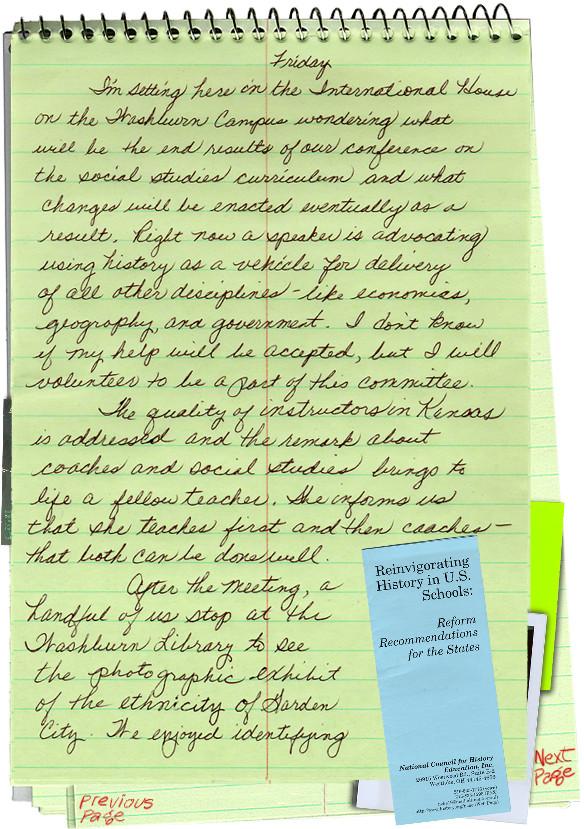 Friday
I'm setting here in the International House
on the Washburn Campus wondering what
will be the end results of our conference on
the social studies curriculum and what
changes will be enacted eventually as a
result. Right now a speaker is advocating
using history as a vehicle for delivery
of all other disciplines - like economics,
geography, and government. I don't know
if my help will be accepted, but I will
volunteer to be a part of this committee.
The quality of instructors in Kansas
is addressed and the remark about
coaches and social studies brings to
life a fellow teacher. She informs us
that she teaches first and then coaches -
that both can be done well.
After the meeting, a
handful of us stop at the
Washburn Library to see
the photographic exhibit
of the ethnicity of Garden
City. We enjoyed identifying
Reinvigorating
History in U.S.
Schools:
Reform
Recommendations
for the States
National Council for History
Education, Inc.
Next
Page
Previous
Page